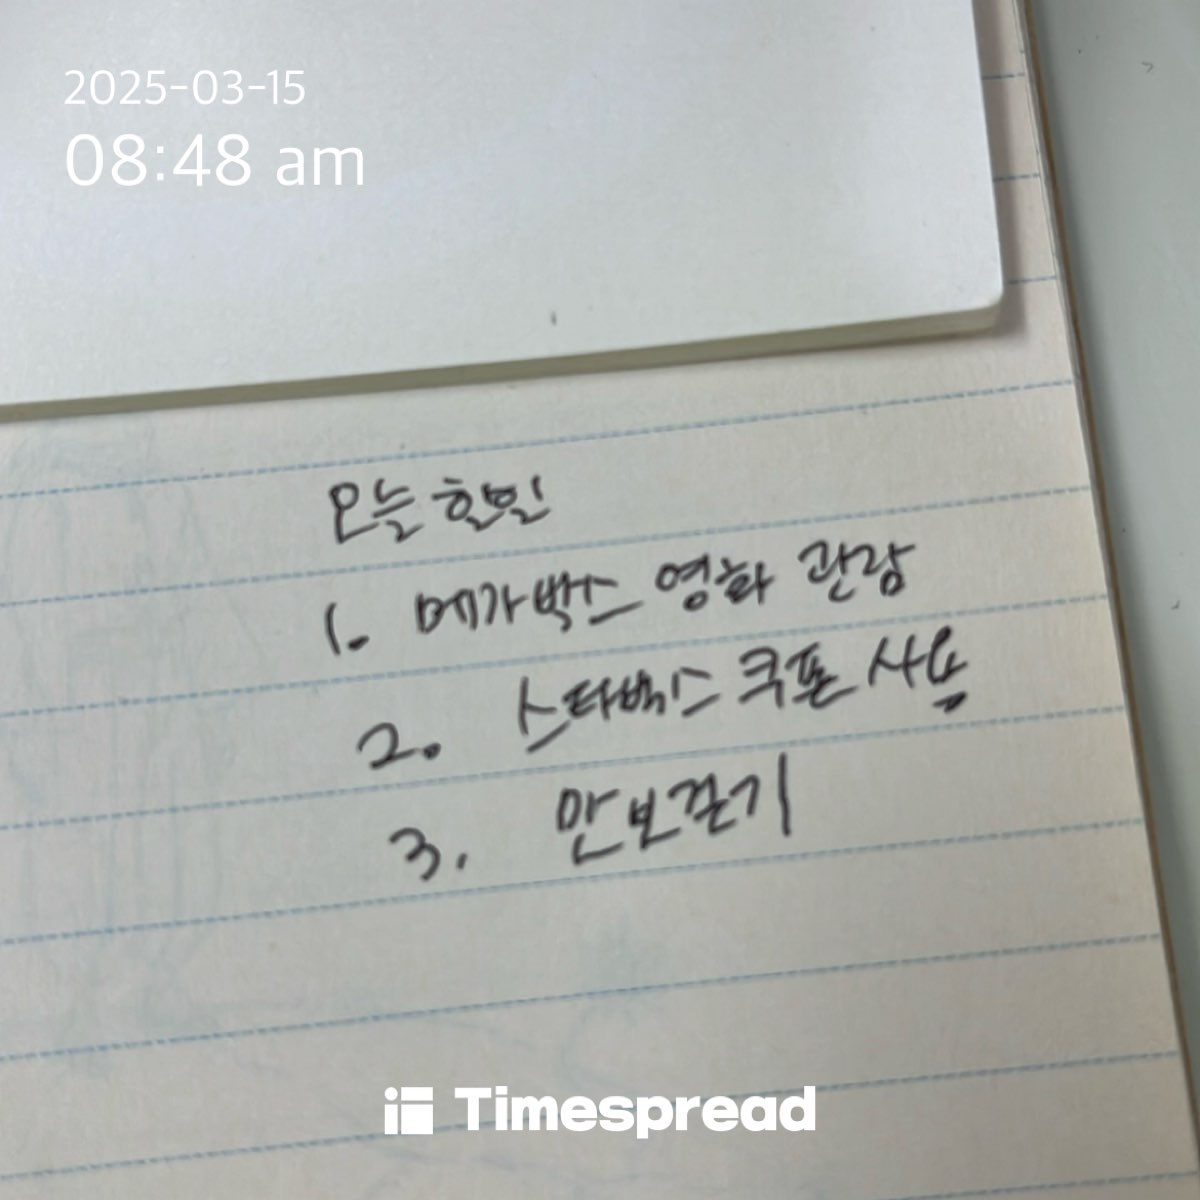 2025-03-15
08:48 am
오늘 할일
1. 메가박스 영화 관람
2. 스타벅스 쿠폰 사용
3. 만보걷기
Timespread